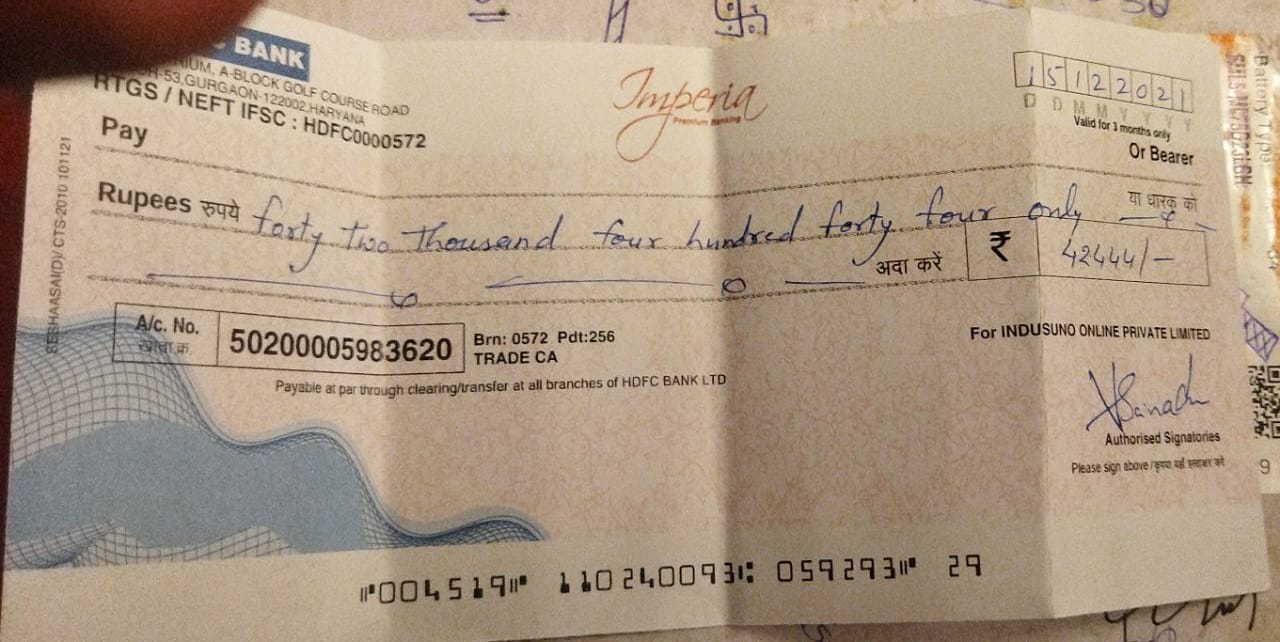 BANK
A-BLOCK GOLF COURSE ROAD
GURGAON-122002,HARYANA
RTGS / NEFT IFSC : HDFC0000572
Imperia
Premium Banking
15122021
D D M M Y Y Y Y
Valid for 3 months only
Pay
Or Bearer
या धारक को
Rupees रुपये forty two thousand four hundred forty four only
अदा करें ₹ 42444/-
A/c. No. 50200005983620
खाता क्र.
Brn: 0572 Pdt:256
TRADE CA
Payable at par through clearing/transfer at all branches of HDFC BANK LTD
For INDUSUNO ONLINE PRIVATE LIMITED
Authorised Signatories
Please sign above /कृपया यहाँ हस्ताक्षर करें
CTS-2010 101121
⑈004519⑈ 110240093⑆ 059293⑈ 29
Battery Type
9